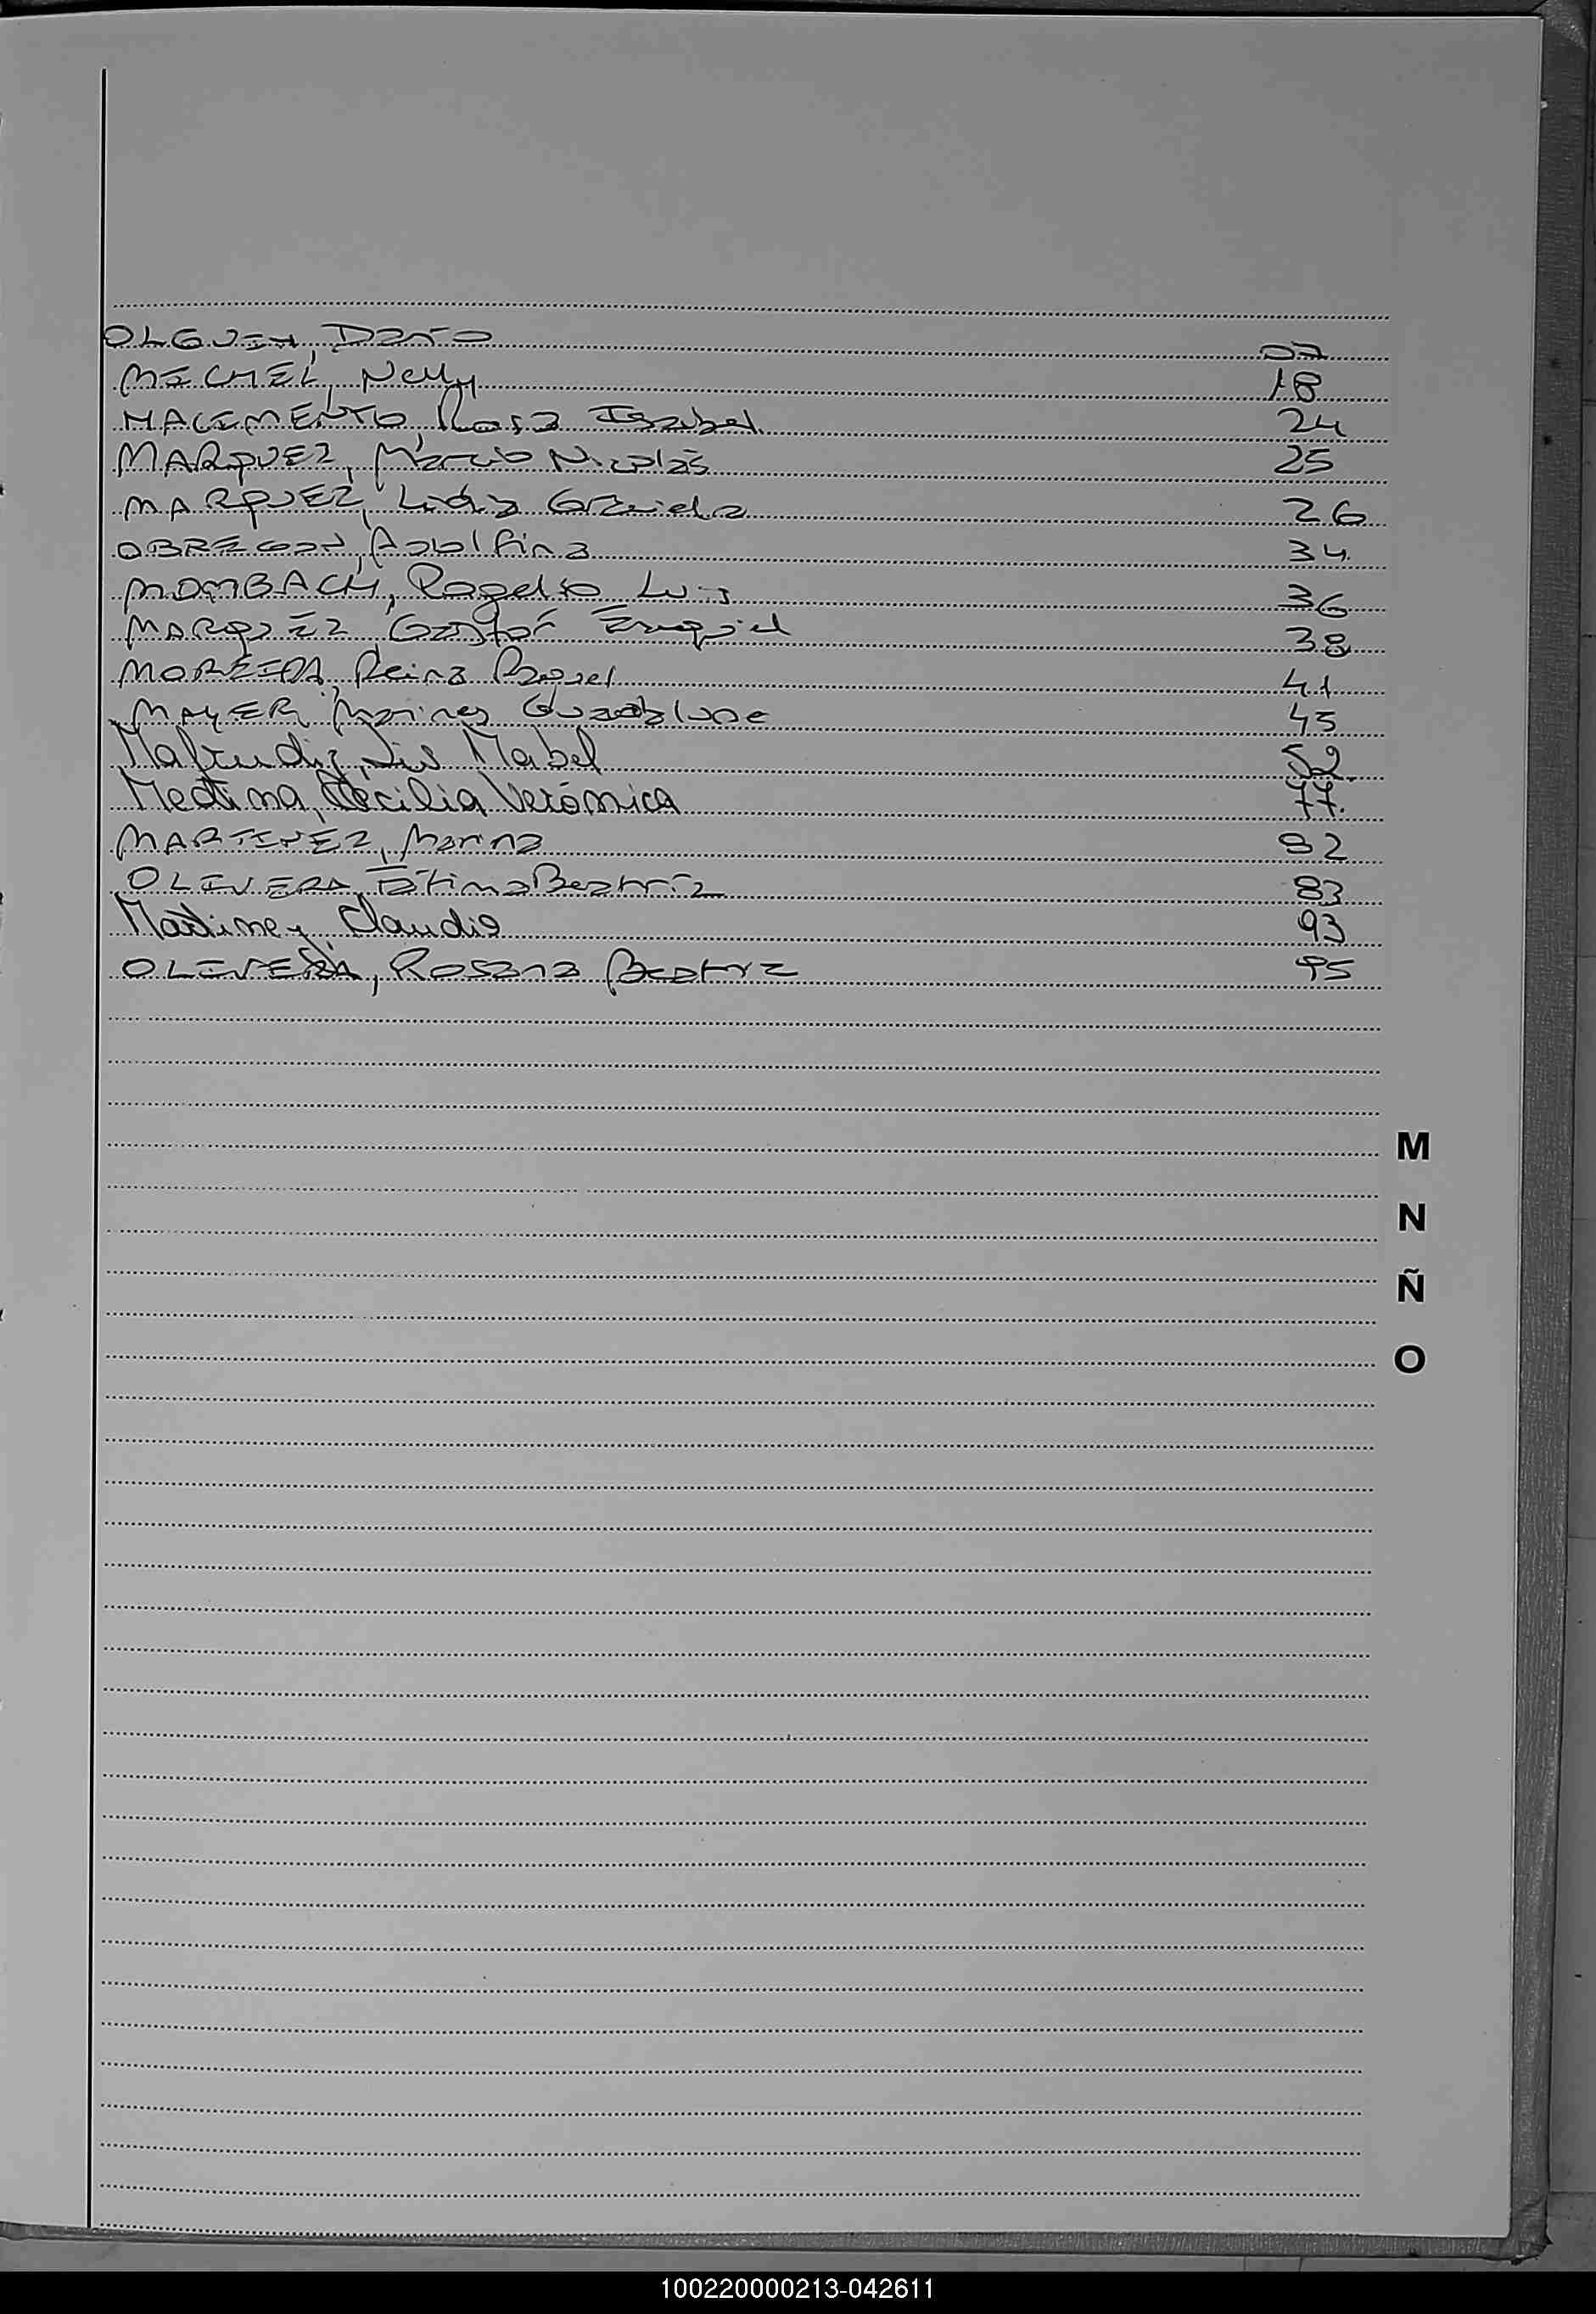 OLGUIN, Darío 07
MICHEL, Nelly 18
NACIMENTO, Rosa Isabel 24
MARQUEZ, Marcio Nicolás 25
MARQUEZ, Lidia Graciela 26
OBREGON, Adolfina 34
MOMBACH, Rogelio Luis 36
MARQUEZ, Gastón Ezequiel 38
MOREIRA, Reina Raquel 41
MAYER, Marines 45
Mabel 52
Medina, Cecilia Verónica 77
MARTINEZ, Marina 82
OLIVERA, Fátima Beatríz 83
Martinez, Claudio 93
OLIVERA, Rosana Beatriz 95
M
N
Ñ
O
100220000213-042611